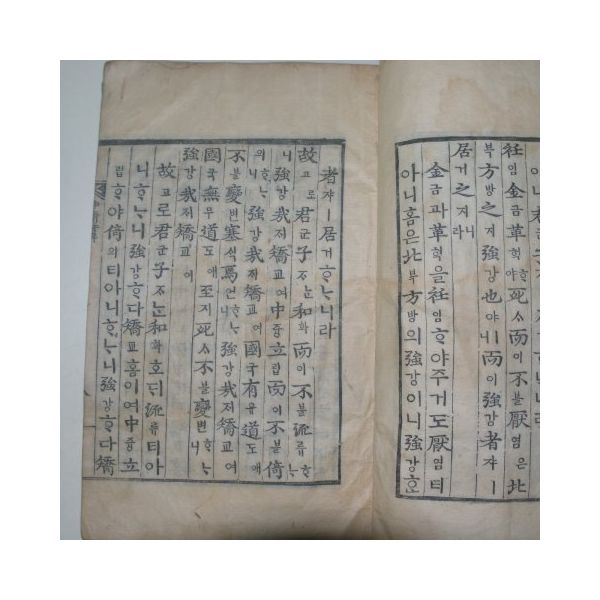 衽임金금革혁ᄒᆞ야死ᄉᆞ而이不블厭염은北
부方방之지強강也야니而이強강者쟈ㅣ
居거之지니라
金금과革혁을衽임ᄒᆞ야주거도厭염티
아니홈은北부方방의強강이니強강ᄒᆞᆫ
者쟈ㅣ居거ᄒᆞᄂᆞ니라
故고로君군子ᄌᆞᄂᆞᆫ和화而이不블流류ᄒᆞᄂᆞ
니強강哉ᄌᆡ矯교여中듕立립而이不블倚
의ᄒᆞᄂᆞ니強강哉ᄌᆡ矯교여國국有유道도애
不블變변塞ᄉᆡᆨ焉언ᄒᆞᄂᆞ니強강哉ᄌᆡ矯교여
國국無무道도애至지死ᄉᆞ不블變변ᄒᆞᄂᆞ니
強강哉ᄌᆡ矯교여
故고로君군子ᄌᆞᄂᆞᆫ和화호ᄃᆡ流류티아
니ᄒᆞᄂᆞ니強강ᄒᆞ다矯교홈이여中듕立
립ᄒᆞ야倚의티아니ᄒᆞᄂᆞ니強강ᄒᆞ다矯